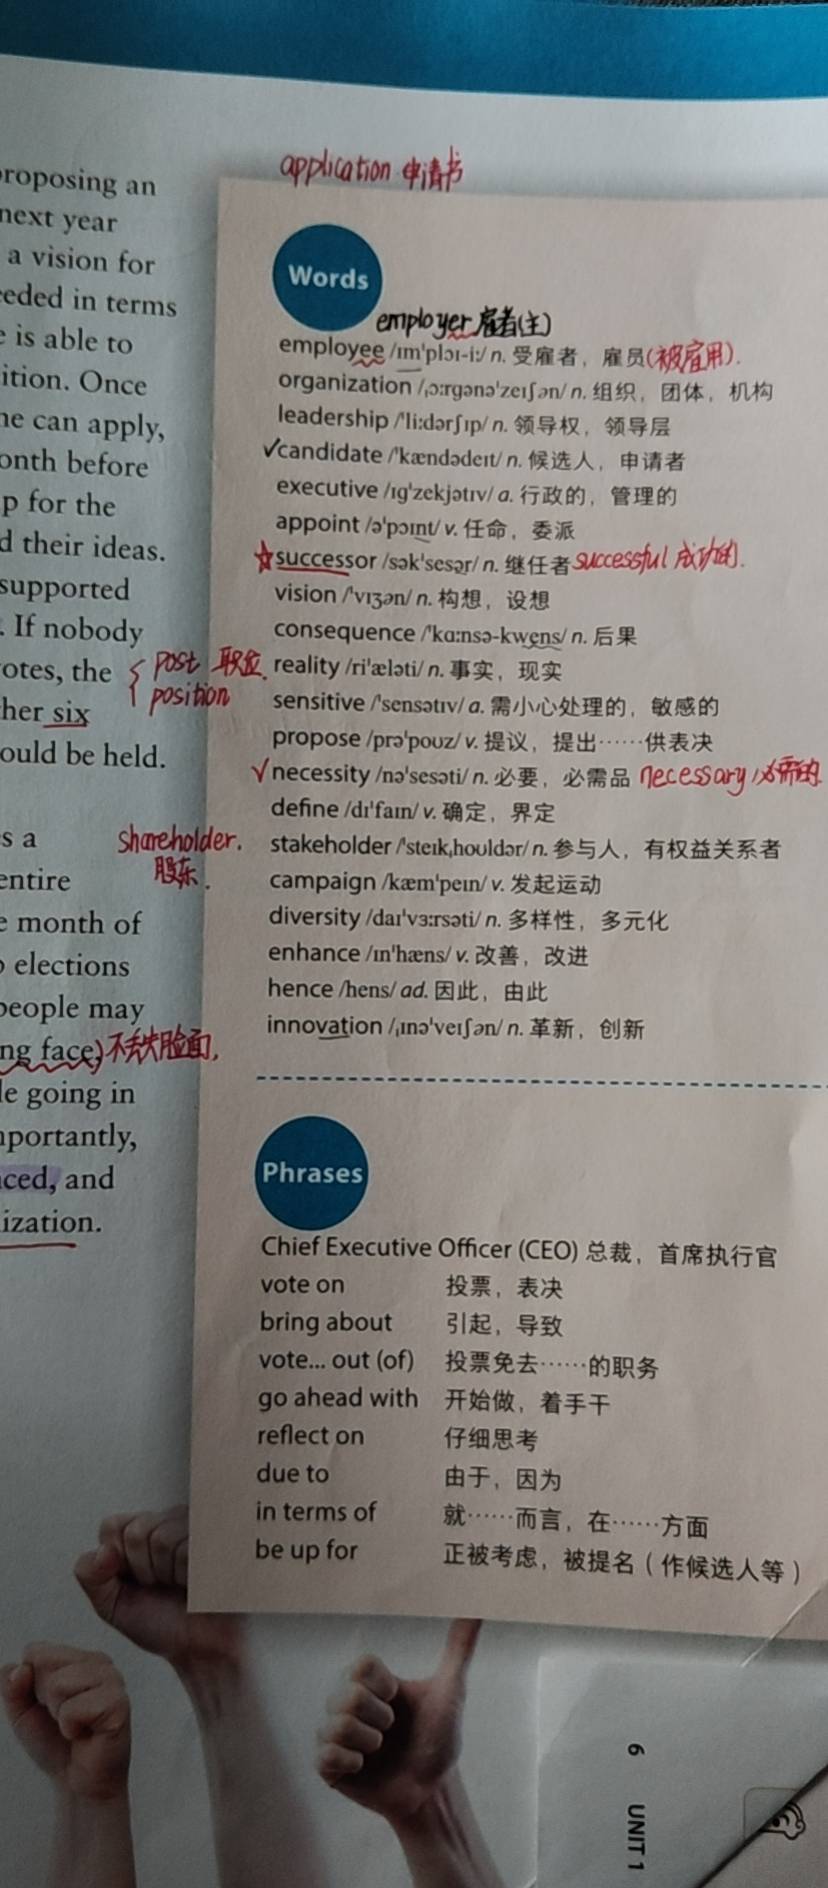 application 申请书
proposing an
next year
a vision for
eeded in terms
e is able to
ition. Once
he can apply,
onth before
p for the
d their ideas.
supported
. If nobody
otes, the
her six
ould be held.
post 职位
position
s a
entire
e month of
o elections
people may
ng face) 不丢失脸面,
le going in
mportantly,
ced, and
ization.
shareholder.
股东.
Words
employer 雇者(主)
employee /ɪmˈplɔɪ-iː/ n. 受雇者，雇员(被雇用).
organization /ˌɔːrgənəˈzeɪʃən/ n. 组织，团体，机构
leadership /ˈliːdərʃɪp/ n. 领导权，领导层
√candidate /ˈkændədeɪt/ n. 候选人，申请者
executive /ɪgˈzekjətɪv/ a. 行政的，管理的
appoint /əˈpɔɪnt/ v. 任命，委派
☆successor /səkˈsesər/ n. 继任者 successful 成功的.
vision /ˈvɪʒən/ n. 构想，设想
consequence /ˈkɑːnsə-kwens/ n. 后果
reality /riˈæləti/ n. 事实，现实
sensitive /ˈsensətɪv/ a. 需小心处理的，敏感的
propose /prəˈpoʊz/ v. 提议，提出……供表决
√necessity /nəˈsesəti/ n. 必要，必需品 necessary 必需的.
define /dɪˈfaɪn/ v. 确定，界定
stakeholder /ˈsteɪkˌhoʊldər/ n. 参与人，有权益关系者
campaign /kæmˈpeɪn/ v. 发起运动
diversity /daɪˈvɜːrsəti/ n. 多样性，多元化
enhance /ɪnˈhæns/ v. 改善，改进
hence /hens/ ad. 因此，由此
innovation /ˌɪnəˈveɪʃən/ n. 革新，创新
Phrases
Chief Executive Officer (CEO) 总裁，首席执行官
vote on 投票，表决
bring about 引起，导致
vote... out (of) 投票免去……的职务
go ahead with 开始做，着手干
reflect on 仔细思考
due to 由于，因为
in terms of 就……而言，在……方面
be up for 正被考虑，被提名（作候选人等）
6 UNIT 1